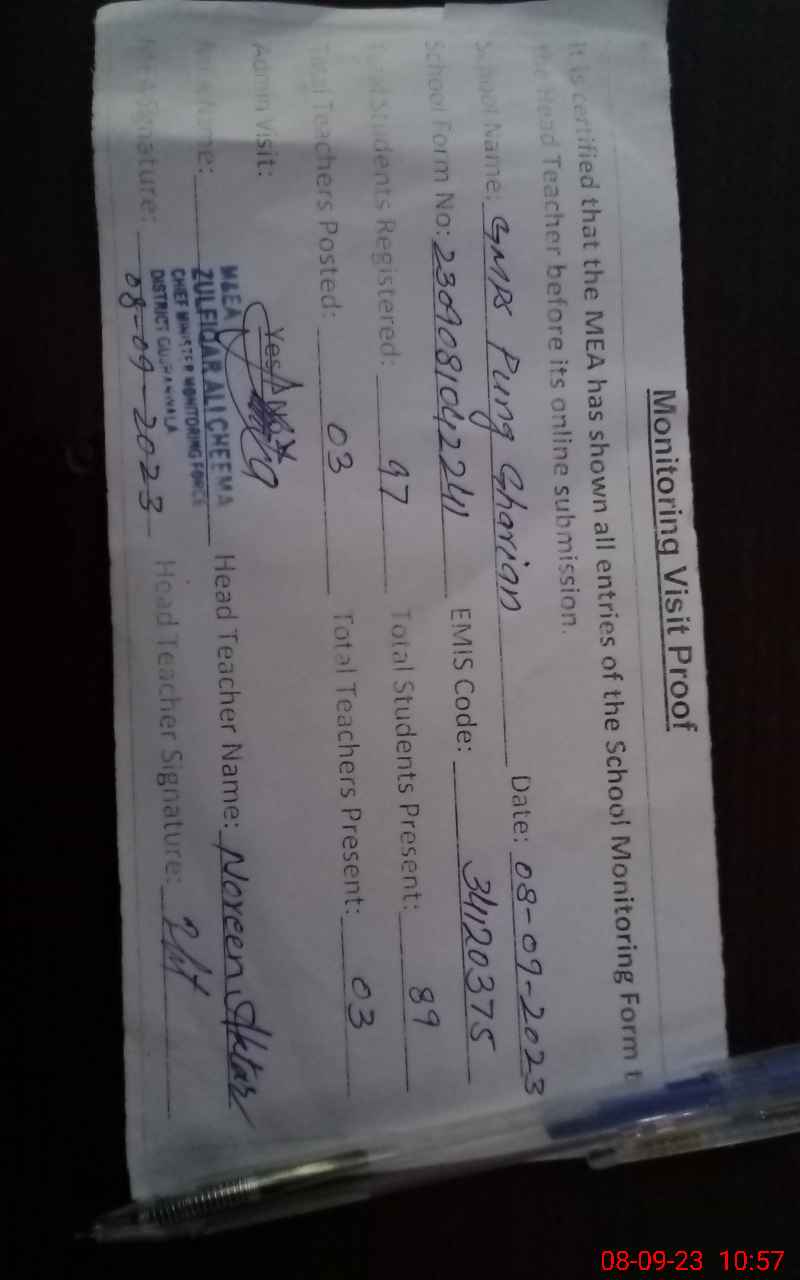 Monitoring Visit Proof
It is certified that the MEA has shown all entries of the School Monitoring Form t
the Head Teacher before its online submission.
School Name: GMPS Pung Gharian Date: 08-09-2023
School Form No: 2309081042241 EMIS Code: 34120375
Total Students Registered: 97 Total Students Present: 89
Total Teachers Posted: 03 Total Teachers Present: 03
Admn Visit: Yes/No
MEA Name: Head Teacher Name: Noreen Akhtar
M&EA
ZULFIQAR ALI CHEEMA
CHIEF MINISTER MONITORING FORCE
DISTRICT GUJRANWALA
MEA Signature: 08-09-2023 Head Teacher Signature:
08-09-23 10:57